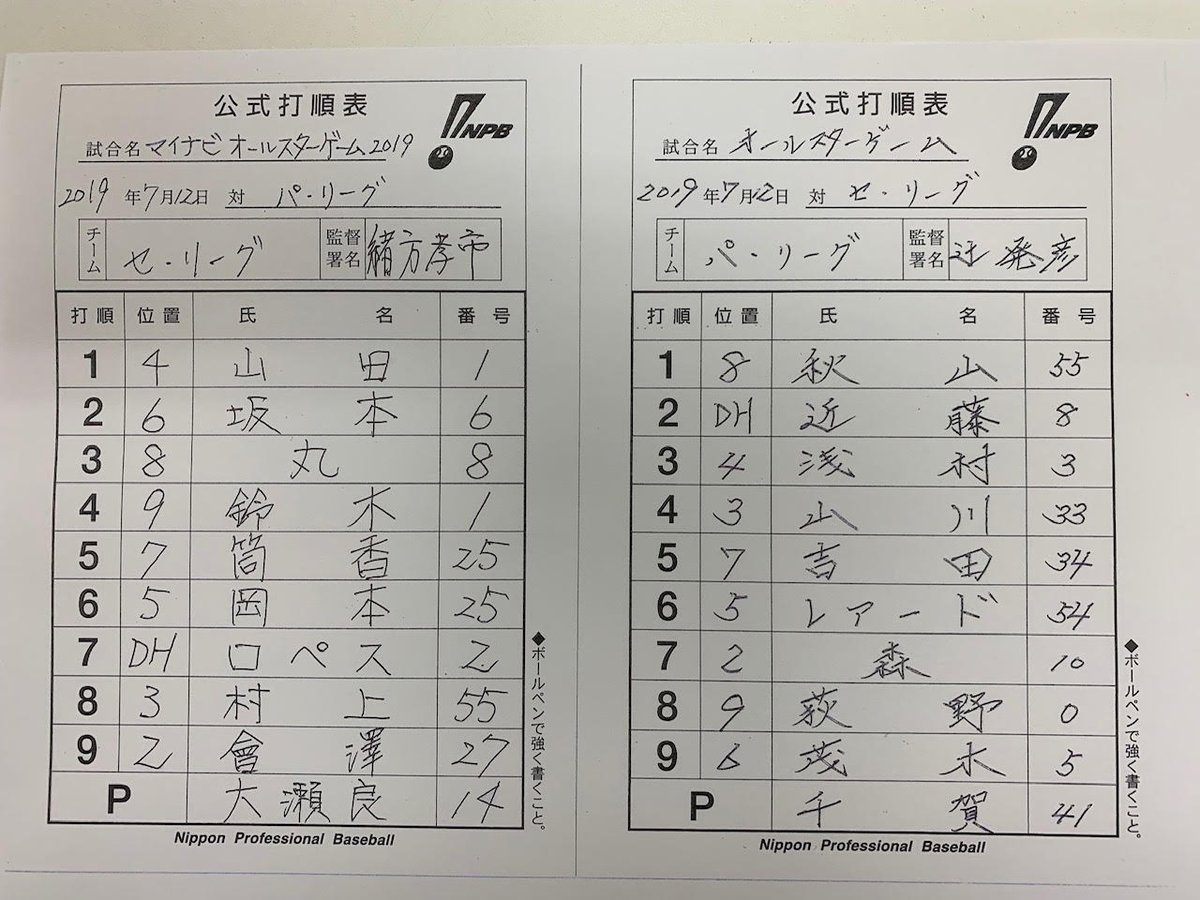 公式打順表
NPB
試合名 マイナビオールスターゲーム2019
2019年7月12日 対 パ・リーグ
チーム セ・リーグ 監督署名 緒方孝市
打順 位置 氏名 番号
1 4 山田 1
2 6 坂本 6
3 8 丸 8
4 9 鈴木 1
5 7 筒香 25
6 5 岡本 25
7 DH ロペス 2
8 3 村上 55
9 2 會澤 27
P 大瀬良 14
Nippon Professional Baseball
◆ボールペンで強く書くこと。
公式打順表
NPB
試合名 オールスターゲーム
2019年7月12日 対 セ・リーグ
チーム パ・リーグ 監督署名 辻発彦
打順 位置 氏名 番号
1 8 秋山 55
2 DH 近藤 8
3 4 浅村 3
4 3 山川 33
5 7 吉田 34
6 5 レアード 54
7 2 森 10
8 9 荻野 0
9 6 茂木 5
P 千賀 41
Nippon Professional Baseball
◆ボールペンで強く書くこと。